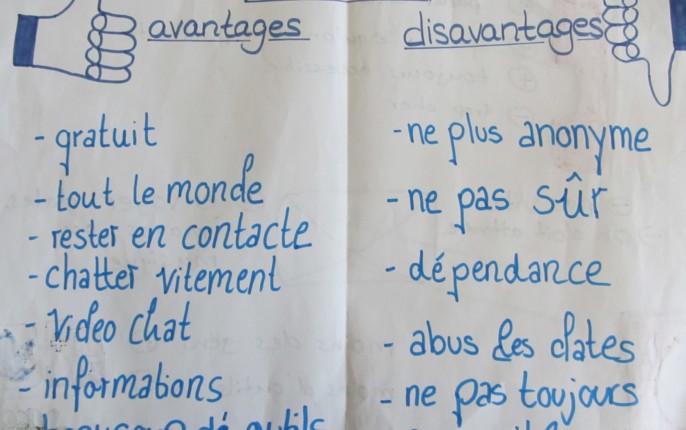 avantages
- gratuit
- tout le monde
- rester en contacte
- chatter vitement
- video chat
- informations
disavantages
- ne plus anonyme
- ne pas sûr
- dépendance
- abus des dates
- ne pas toujours